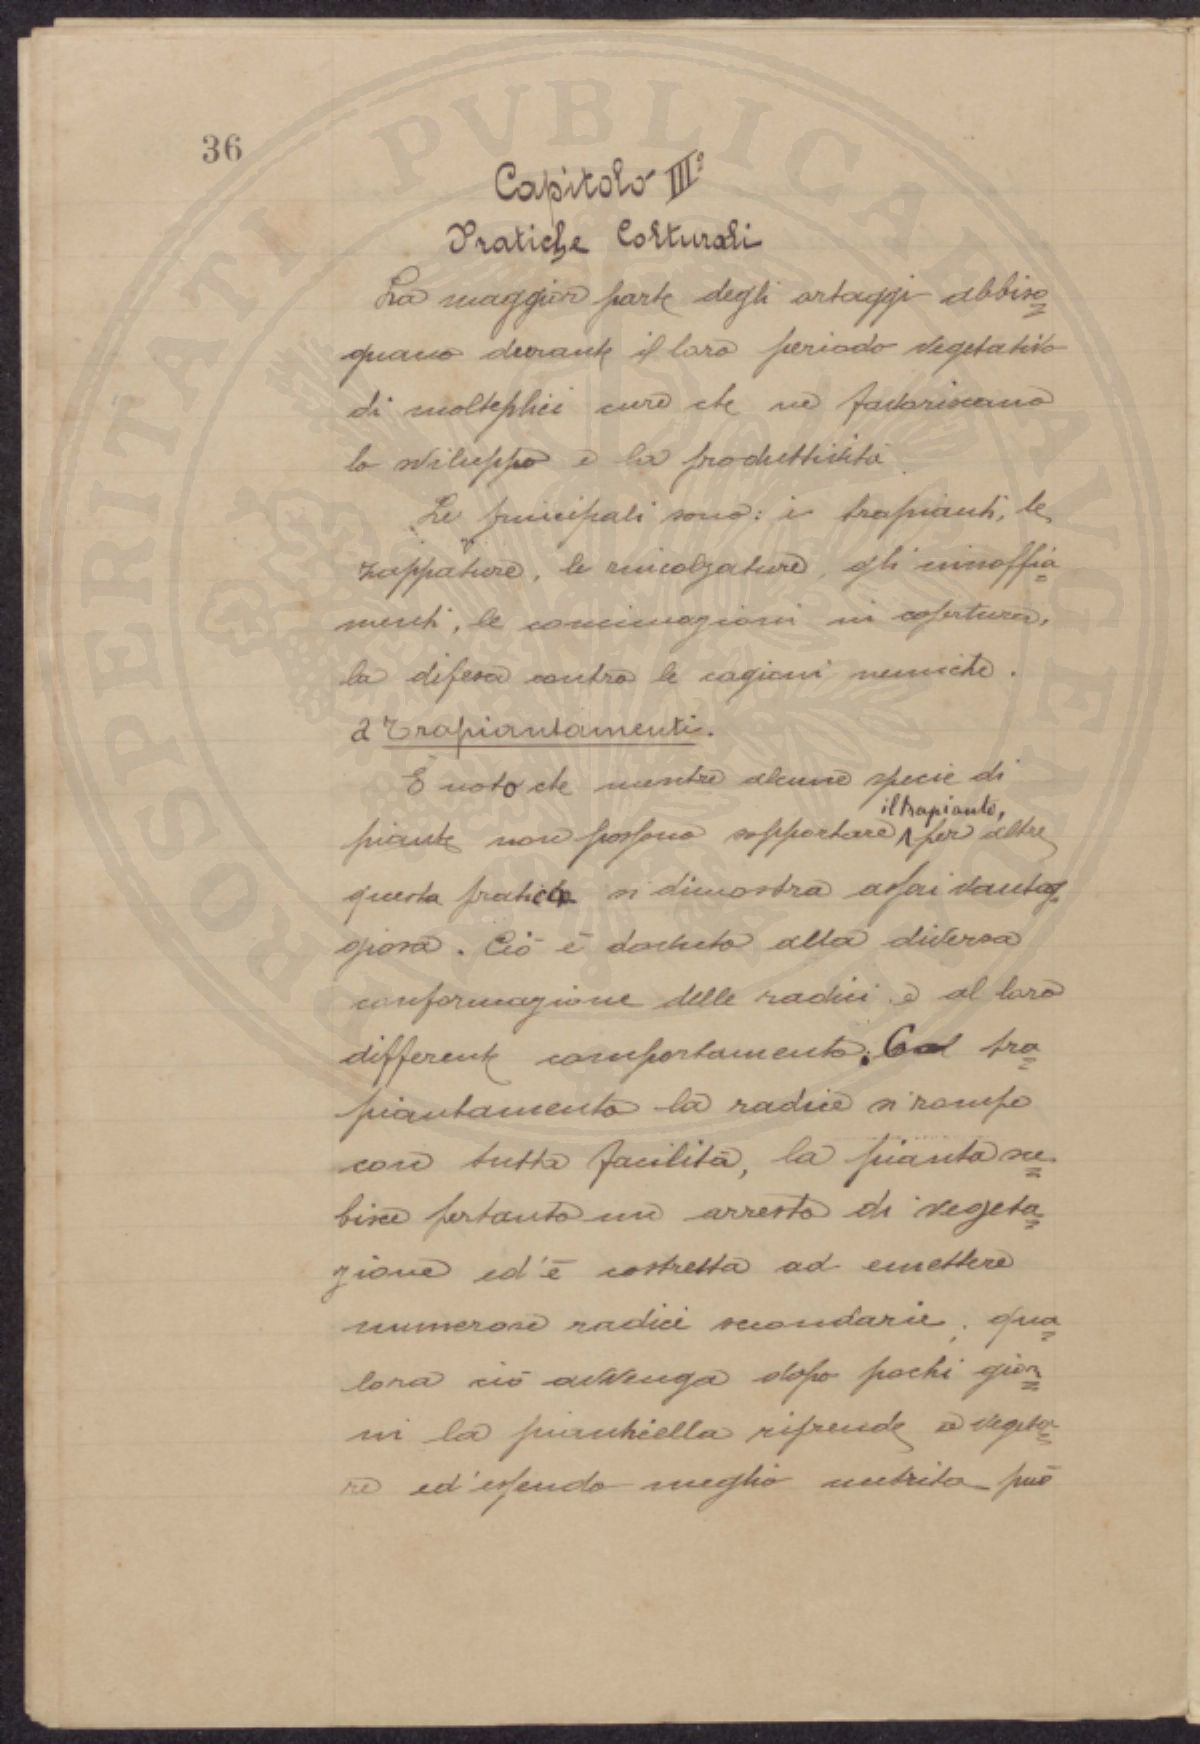 36
Capitolo III°
Pratiche Colturali
La maggior parte degli ortaggi abbiso=
gnano durante il loro periodo vegetativo
di molteplici cure che ne favoriscano
lo sviluppo e la produttività
Le principali sono: i trapianti, le
zappature, le rincalzature, gli innaffia=
menti, le concimazioni in copertura,
la difesa contro le cagioni nemiche.
a Trapiantamenti.
È noto che mentre alcune specie di
il trapianto,
piante non possono sopportare per altre
questa pratica si dimostra assai vantag=
giosa. Ciò è dovuto alla diversa
conformazione delle radici e al loro
differente comportamento. Col tra=
piantamento la radice si rompe
con tutta facilità, la pianta su=
bisce pertanto un arresto di vegeta=
zione ed'è costretta ad emettere
numerose radici secondarie; qua=
lora ciò avvenga dopo pochi gior=
ni la pianticella riprende a vegeta=
re ed'essendo meglio nutrita può
PROSPERITATI PVBLICAE AVGENDAE